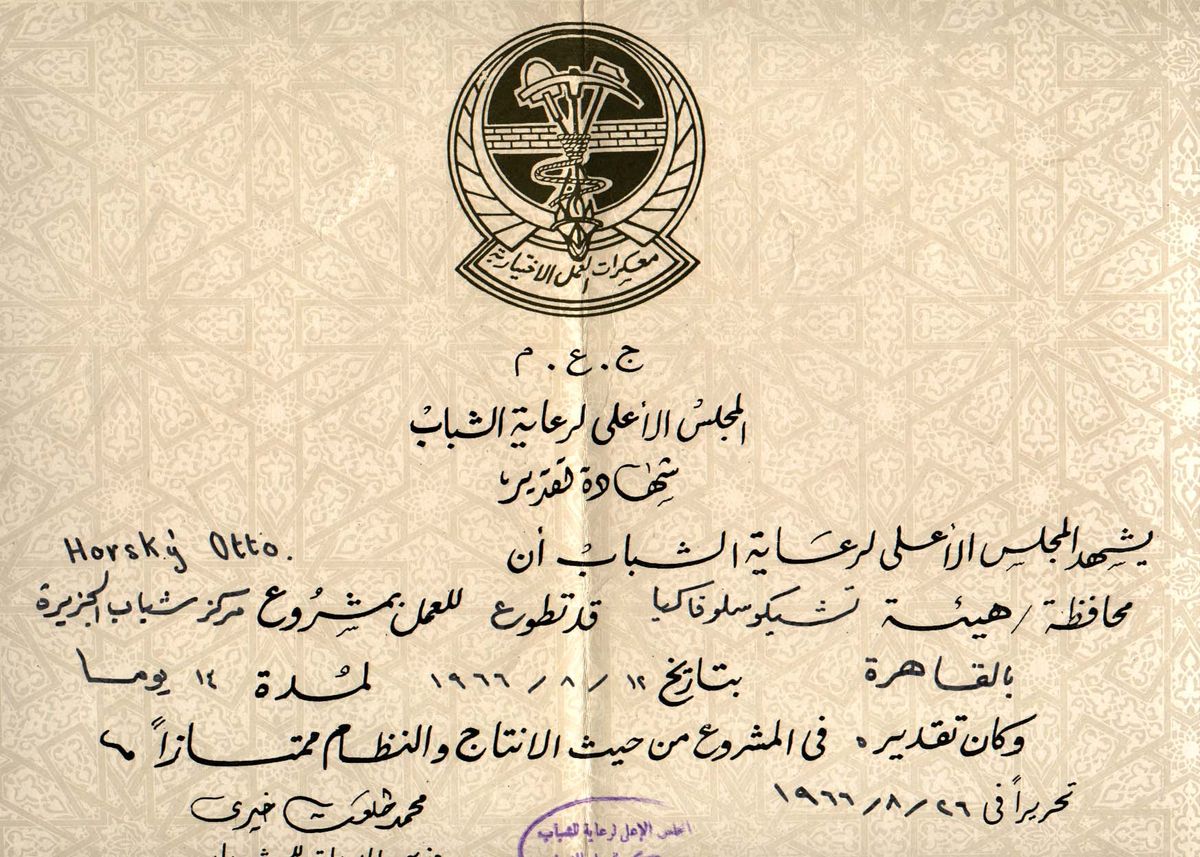 معسكرات العمل الاختيارية
ج . ع . م
المجلس الأعلى لرعاية الشباب
شهادة تقدير
يشهد المجلس الأعلى لرعاية الشباب أن Horský Otto.
محافظة / هيئة تشيكوسلوفاكيا قد تطوع للعمل بمشروع مركز شباب الجزيرة
بالقاهرة بتاريخ ١٢ / ٨ / ١٩٦٦ لمدة ١٤ يوما
وكان تقديره في المشروع من حيث الانتاج والنظام ممتازاً
تحريراً في ٢٦ / ٨ / ١٩٦٦
محمد طلعت خيرى
المجلس الاعلى لرعاية الشباب